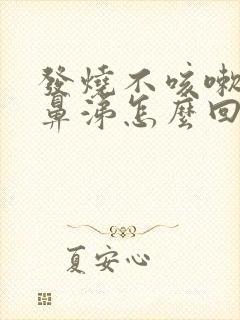 發燒不咳嗽
鼻涕怎麼回
夏安心